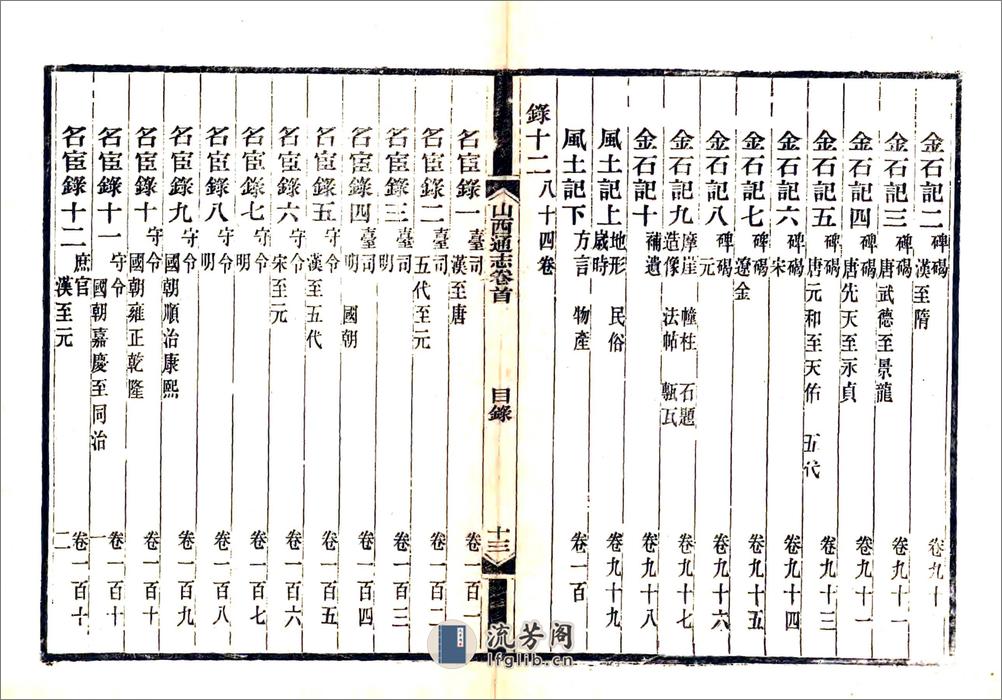 金石記二 碑碣 漢至隋 卷九十
金石記三 碑碣 唐武德至景龍 卷九十一
金石記四 碑碣 唐先天至永貞 卷九十二
金石記五 碑碣 唐元和至天佑 五代 卷九十三
金石記六 碑碣 宋 卷九十四
金石記七 碑碣 遼金 卷九十五
金石記八 碑碣 元 卷九十六
金石記九 摩崖 幢柱 石題 造像 法帖 甎瓦 卷九十七
金石記十 補遺 卷九十八
風土記上 地形 民俗 歲時 卷九十九
風土記下 方言 物產 卷一百
錄十二 八十四卷
山西通志卷首 目錄 十三
名宦錄一 臺司 漢至唐 卷一百一
名宦錄二 臺司 五代至元 卷一百二
名宦錄三 臺司 明 卷一百三
名宦錄四 臺司 明 國朝 卷一百四
名宦錄五 守令 漢至五代 卷一百五
名宦錄六 守令 宋至元 卷一百六
名宦錄七 守令 明 卷一百七
名宦錄八 守令 明 卷一百八
名宦錄九 守令 國朝順治康熙 卷一百九
名宦錄十 守令 國朝雍正乾隆 卷一百十
名宦錄十一 守令 國朝嘉慶至同治 卷一百十一
名宦錄十二 庶官 漢至元 卷一百十二
流芳阁
lfglib.cn